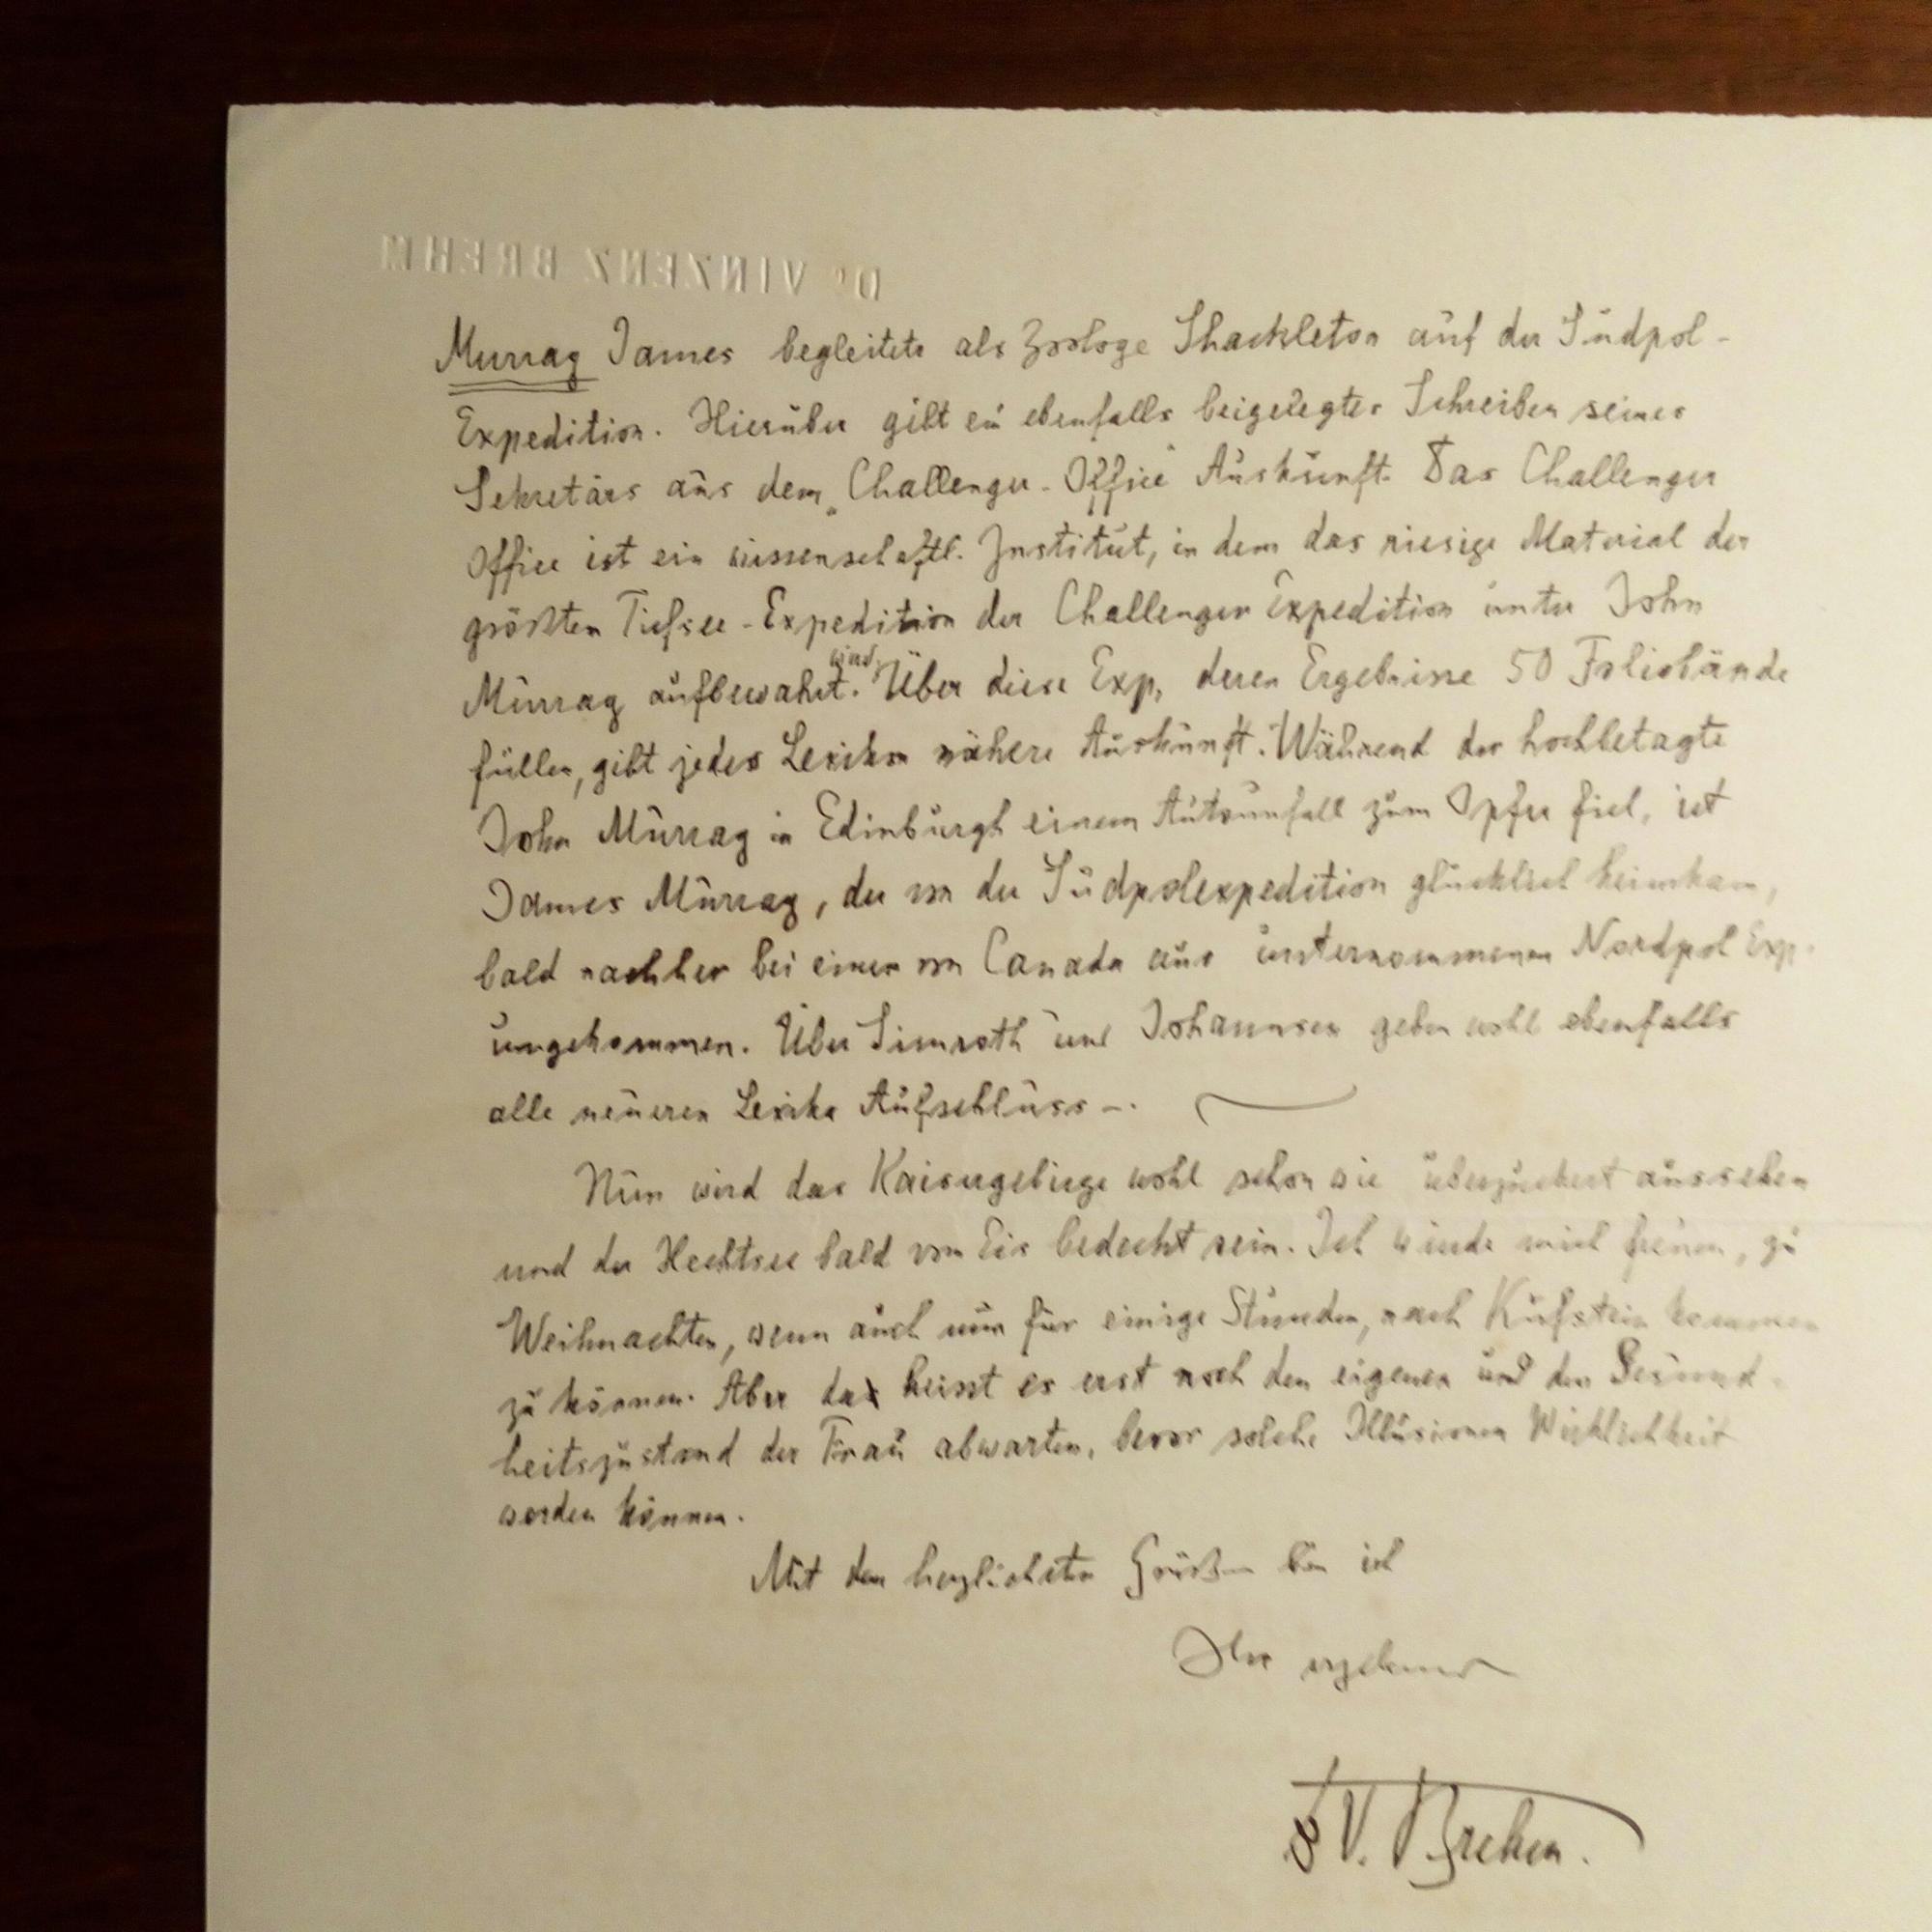 Dr VINZENZ BREHM
Murray James begleitete als Zoologe Shackleton auf der Südpol-
Expedition. Hierüber gibt ein ebenfalls beigelegtes Schreiben seines
Sekretärs aus dem „Challenger-Office" Auskunft. Das Challenger
Office ist ein wissenschaftl. Institut, in dem das riesige Material der
größten Tiefsee-Expedition der Challenger Expedition unter John
Murray aufbewahrt wird. Über diese Exp, deren Ergebnisse 50 Foliobände
füllen, gibt jedes Lexikon nähere Auskunft. Während der hochbetagte
John Murray in Edinburgh einem Autounfall zum Opfer fiel, ist
James Murray, der von der Südpolexpedition glücklich heimkam,
bald nachher bei einer von Canada aus unternommenen Nordpol Exp.
umgekommen. Über Simroth und Johannsen geben wohl ebenfalls
alle neueren Lexika Aufschluss -.
Nun wird das Kaisergebirge wohl schon wie überzuckert aussehen
und der Hechtsee bald von Eis bedeckt sein. Ich würde mich freuen, zu
Weihnachten, wenn auch nur für einige Stunden, nach Kufstein kommen
zu können. Aber da heisst es erst noch den eigenen und den Gesund-
heitszustand der Frau abwarten, bevor solche Illusionen Wirklichkeit
werden können.
Mit den herzlichsten Grüßen bin ich
Ihr ergebener
Dr V. Brehm.